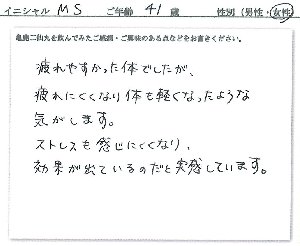 イニシャル MS ご年齢 41 歳 性別（男性・女性）
亀鹿二仙丸を飲んでみたご感想、ご興味のある点などをお書きください。
疲れやすかった体でしたが、
疲れにくくなり体も軽くなったような
気がします。
ストレスも感じにくくなり、
効果が出ているのだと実感しています。